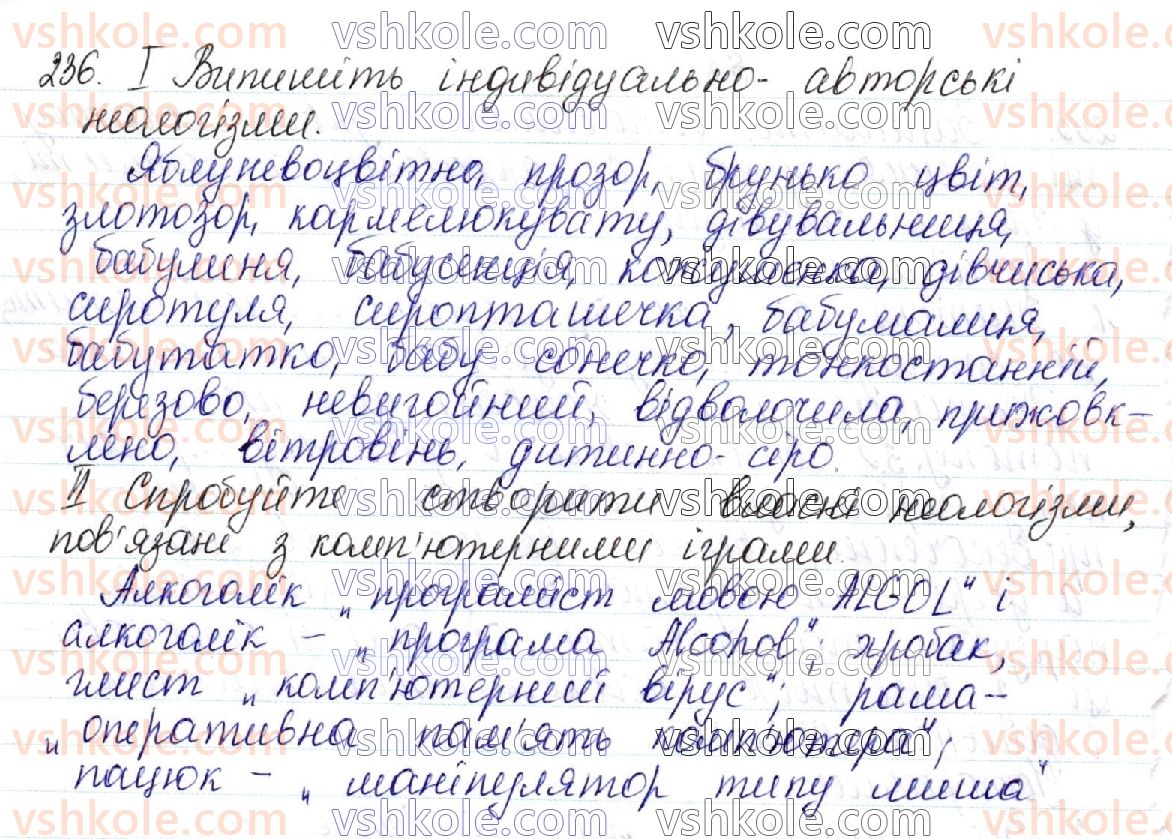 236. I Випишіть індивідуально- авторські
неологізми.
Яблуневоцвітно, прозор, брунько цвіт,
злотозор, кармелюкувату, дівувальниця,
бабулиня, бабусенція, дівчиська,
сиротуля, сиропташечка, бабумамця,
бабутатко, бабу сонечко, тонкостанній,
березово, невигойний, відволочила, прижовк-
лено, вітровінь, дитинно- сіро.
II Спробуйте створити власні неологізми,
пов'язані з комп'ютерними іграми.
Алкоголік „програміст мовою ALGOL" і
алкоголік – „програма"; хробак,
глист „комп'ютерний вірус"; рама –
„оперативна пам'ять комп'ютера";
пацюк – „маніпулятор типу миша"
vshkole.com